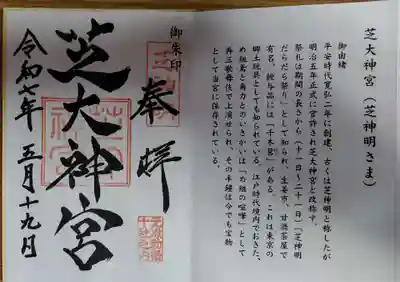 芝大神宮(芝神明さま)
御由緒
平安時代寛弘二年に創建、古くは芝神明と称したが
明治五年正式に官許され芝大神宮と改称す。
祭礼は期間の長さから(十一日~二十一日)「芝神明
だらだら祭り」として知られ、生姜市、甘酒茶屋で
有名。授与品には「千木筥」がある。これは東京の
郷土玩具としても知られている。江戸時代境内でおきた、
め組鳶と角力とのいさかいは「め組の喧嘩」として
再三歌舞伎で上演せられ、その半鐘は今でも宝物
として当宮に保存されている。
御朱印
奉拝
芝大神宮
令和七年 五月十九日